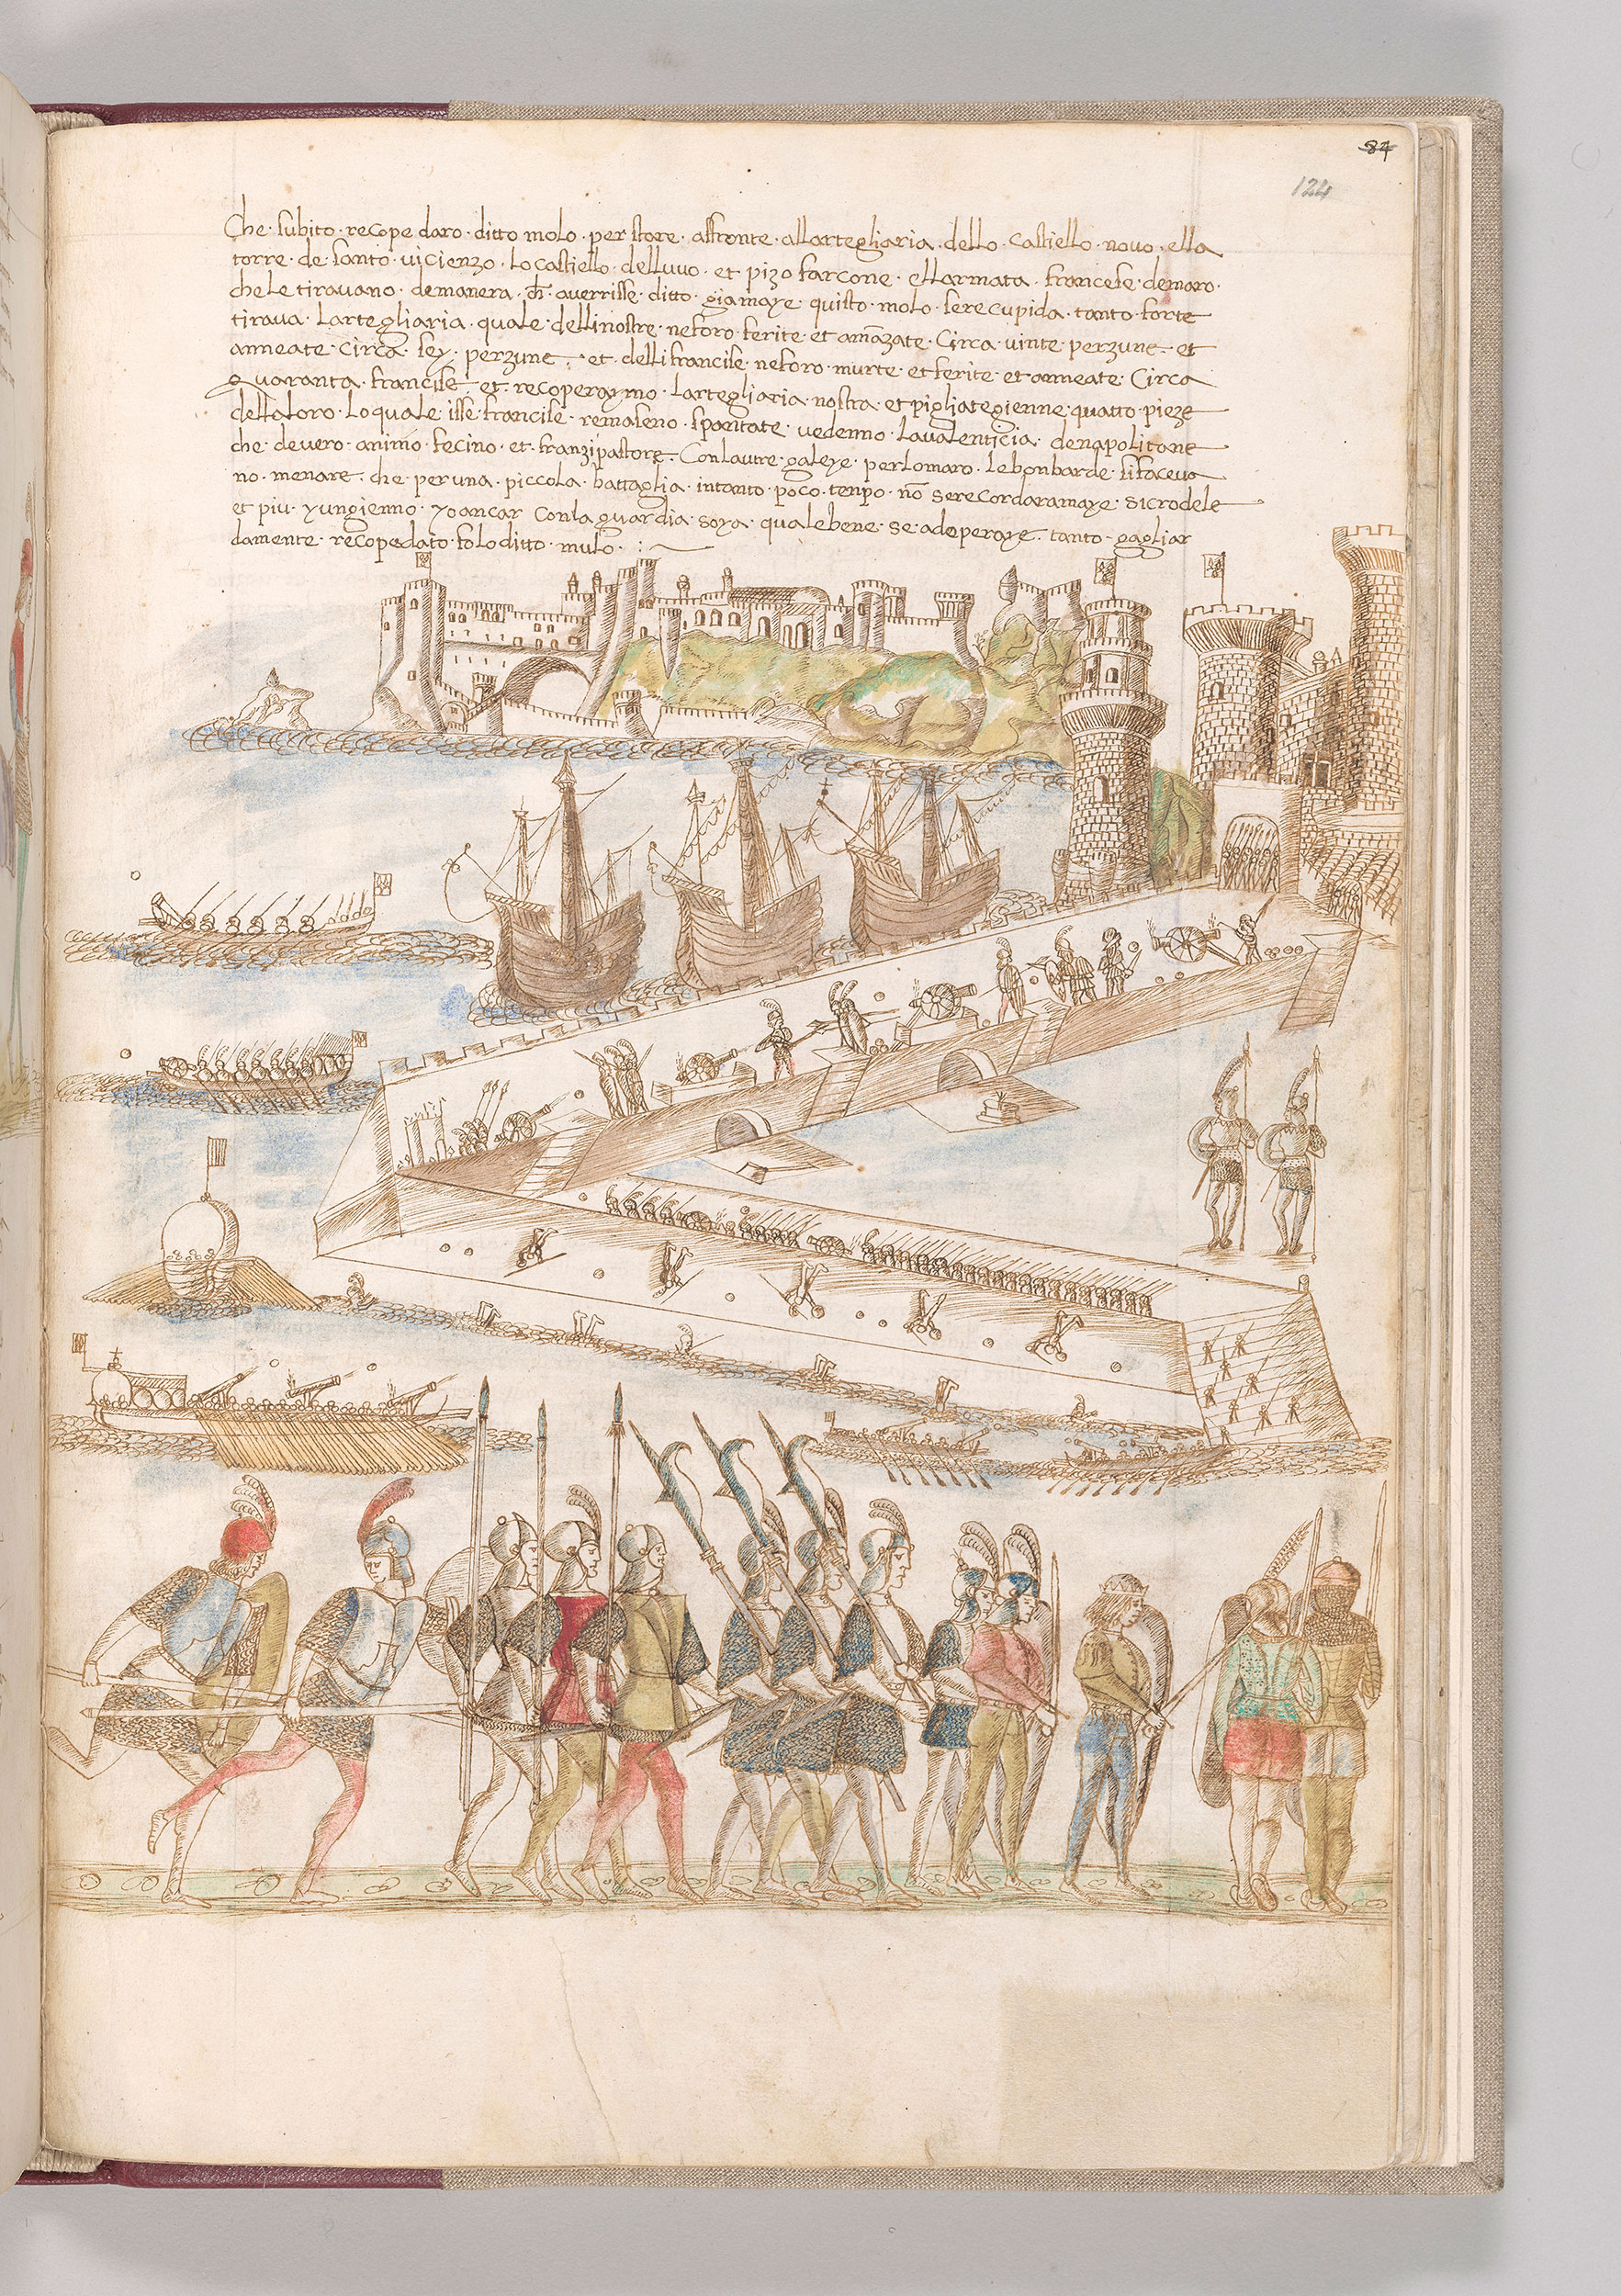 84
124
Che · subito · recope daro · ditto molo · per stare · affronte · allartegliaria · dello · castiello · novo · ella
torre · de santo · vicienzo · lo castiello · delluvo · et pizo farcone · ellarmata · francese · demaro ·
che le tiravano · demanera · averrisse · ditto · giamaye · quisto · molo · se recupida · tanto · forte
tirava · lartegliaria · quale · dellinostre · ne foro · ferite · et amazate · Circa · vinte · perzune · et
anneate · circa · sey · perzune · et · delli francise · ne foro · murte · et ferite · et anneate · Circa
quaranta · francise · et · recoperaymo · lartegliaria · nostra · et pigliategienne · quatto · pieze
della loro · lo quale · isse · francise · remaseno · spantate · vedenno · la valenticia · de napolitane
che de vero · animo · fecino · et · franzi pastore · Con lautre · galeye · per lo maro · le bonbarde · si faceva
no · menare · che per una · piccola · battaglia · intanto · poco · tenpo · nō se recordara maye · si crodele
et piu · yungienno · yoancar con la guardia · soya · quale bene · se adoperaye · tanto · gagliar
damente · recopedato · folo ditto · mulo · : ~